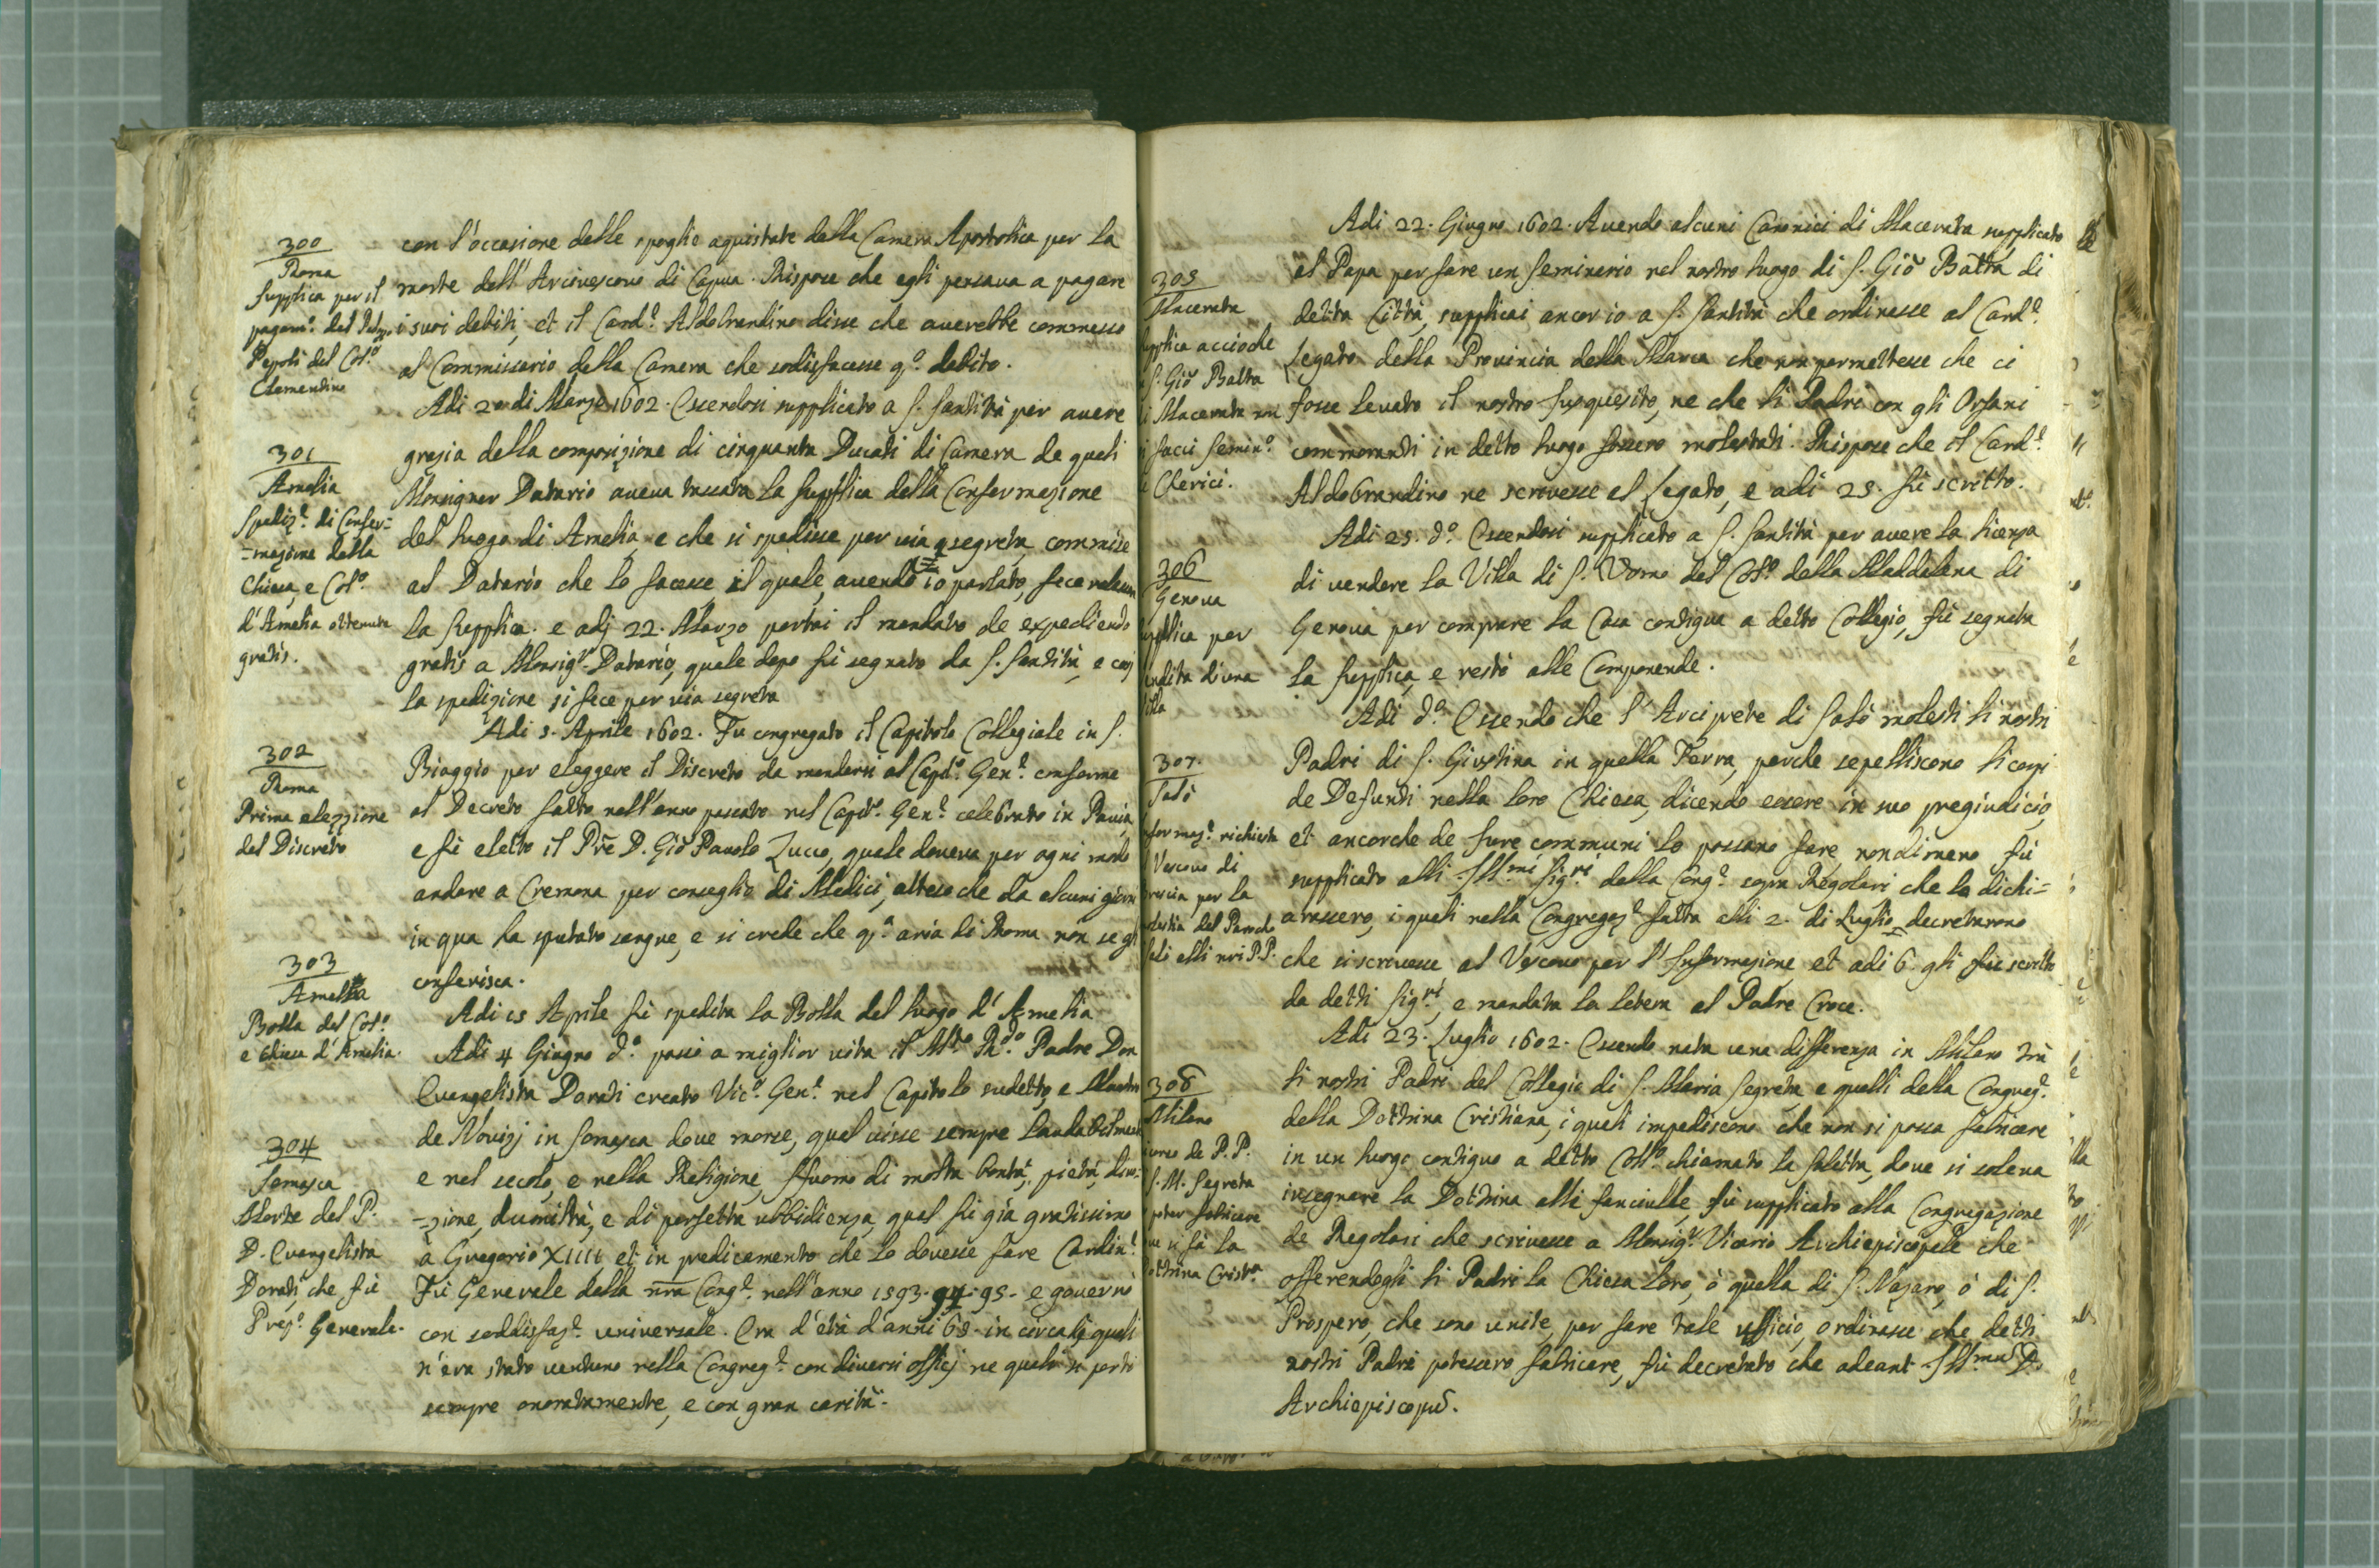 300
Roma
Supplica per il
pagam.º del Palazo
Pepoli del Col.º
Clementino
con l'occasione delle spoglie aquistate dalla Camera Apostolica per la
morte dell'Arcivescovo di Capua. Rispose che egli pensava a pagare
i suoi debiti, et il Card.e Aldobrandino disse che averebbe commesso
al Commissario della Camera che sodisfacesse q.º debito.
Adi 20 di Marzo 1602. Essendosi supplicato a S. Santità per avere
301
Amelia
Spediz.e di Confer=
=mazione della
Chiesa, e Col.º
d'Amelia ottenuta
gratis.
grazia della composizione di cinquanta Ducati di Camera de quali
Monsignor Datario aveva tassata la supplica della Confermazione
del luogo di Amelia, e che si spedisse per via segreta, commise
al Datario che lo facesse il quale, avendo io parlato, fece
la supplica. e adj 22. Marzo portai il mandato de expediendo
gratis a Monsig.r Datario, quale dopo fù segnato da S. Santità, e così
la spedizione si fece per via segreta
Adi 5. Aprile 1602. Fu congregato il Capitolo Collegiale in S.
302
Roma
Prima elezzione
del Discreto
Biaggio per eleggere il Discreto da mandarsi al Cap.º Gen.e conforme
al Decreto fatto nell'anno passato nel Capit.º Gen.e celebrato in Pavia,
e fù eletto il Pře D. Giõ Pauolo Zucco, quale doveva per ogni modo
andare a Cremona per conseglio di Medici, atteso che da alcuni giorni
in qua ha sputato sangue, e si crede che q.a aria di Roma non se gli
conferisca.
303
Amelia
Bolla del Col.º
e Chiesa d'Amelia.
Adi 15 Aprile fù spedita la Bolla del luogo d'Amelia
Adi 4 Giugno d.º passò a miglior vita il M.to R.do Padre Don
Evangelista Dorati creato Vic.º Gen.e nel Capitolo sudetto, e Maestro
304
Somasca
Morte del P.
D. Evangelista
Dorati che fù
Prep.º Generale.
de Novizj in Somasca dove morse, qual visse sempre laudabilmente
e nel secolo, e nella Religione, fù uomo di molta bontà, pietà, divo=
=zione, d'umiltà, e di perfetta ubbidienza, qual fù già gratissimo
à Gregorio XIIII, et in predicamento che lo dovesse fare Cardin.e
Fù Generale della nřa Cong.e nell'anno 1593. 94. 95. e governò
con soddisfaz.e universale. Era d'età d'anni 68. in circa li quali
n'era stato ventuno nella Congreg.e con diversi officj ne quali si portò
sempre onoratamente, e con gran carità.
Adi 22. Giugno 1602. Avendo alcuni Canonici di Macerata supplicato
305
Macerata
supplica acciochè
S. Giõ Batta
di Macerata non
si facci Semin.º
Chierici.
al Papa per fare un Seminario nel nostro luogo di S. Giõ Batta di
detta Città, supplicai ancor io a S. Santità che ordinasse al Card.e
Legato della Provincia della Marca che non permettesse che ci
fosse levato il nostro Jusquesito, ne che li Padri con gli Orfani
commoranti in detto luogo fossero molestati. Rispose che il Card.e
Aldobrandino ne scrivesse al Legato, e adi 25. fù scritto.
Adi 25. d.º Essendosi supplicato a S. Santità per avere la licenza
306
Genova
supplica per
vendita di una
Villa
di vendere la Villa di S. Uomo del Coll.º della Maddalena di
Genova per comprare la Casa contigua a detto Collegio, fù segnata
la supplica, e restò alle Componende.
Adi d.º Essendo che l'Arciprete di Salò molesti li nostri
307
Salò
Informaz.e richiesta
Vescovo di
Brescia per la
molestia del Parocho
Salò alli nři P.P.
Padri di S. Giustina in quella Terra, perche sepelliscono li corpi
de Defunti nella loro Chiesa, dicendo essere in suo pregiudicio,
et ancorche de Jure communi lo possano fare, nondimeno fù
supplicato alli Ill.mi Sig.ri della Cong.e sopra Regolari che lo dichi=
arassero, i quali nella Congregaz.e fatta alli 2. di Luglio decretarono
che si scrivesse al Vescovo per l'Informazione et adi 6. gli fù scritto
da detti Sig.ri, e mandata la lettera al Padre Croce.
Adi 23. Luglio 1602. Essendo nata una differenza in Milano trà
308
Milano
de P.P.
S. M. Segreta
poter fabricare
ove si fà la
Dottrina Crist.a
li nostri Padri del Collegio di S. Maria Segreta e quelli della Congreg.e
della Dottrina Cristiana, i quali impediscono che non si possa fabricare
in un luogo contiguo a detto Coll.º chiamato la Saletta, dove si soleva
insegnare la Dottrina alli fanciulle, fù supplicato alla Congregazione
de Regolari che scrivesse a Monsig.r Vicario Archiepiscopale che
offerendogli li Padri la Chiesa loro, ò quella di S. Nazaro, ò di S.
Prospero, che sono unite, per fare tale ufficio, ordinasse che detti
nostri Padri potessero fabricare, fù decretato che adeant Ill.mus D.
Archiepiscopus.